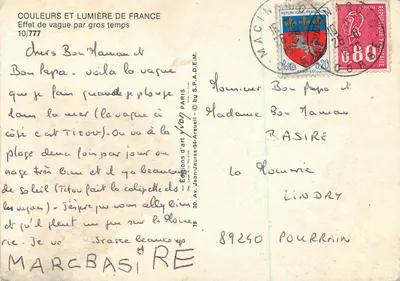 COULEURS ET LUMIÈRE DE FRANCE
Effet de vague par gros temps
10/777
chers Bon Maman et
Bon Papa. voila la vague
que je fais quand je plonge
dans la mer (la vague à
côté c'est Titou). On va à la
plage deux fois par jour on
nage très bien et il y a beaucoup
de soleil (Titou fait la culipette ds
les vagues). J'espère que vous allez bien
et qu'il pleut un peu sur la Mou
rie. Je vs beaucoup
MARC BASIRE
Editions d'art yvon PARIS
15, Av. Jean-Jaurès-94-Arcueil - © by S.P.A.D.E.M.
REPUBLIQUE FRANÇAISE
0,20
0,80
Monsieur Bon Papa et
Madame Bon Maman
BASIRE
la
LINDRY
89240 POURRAIN